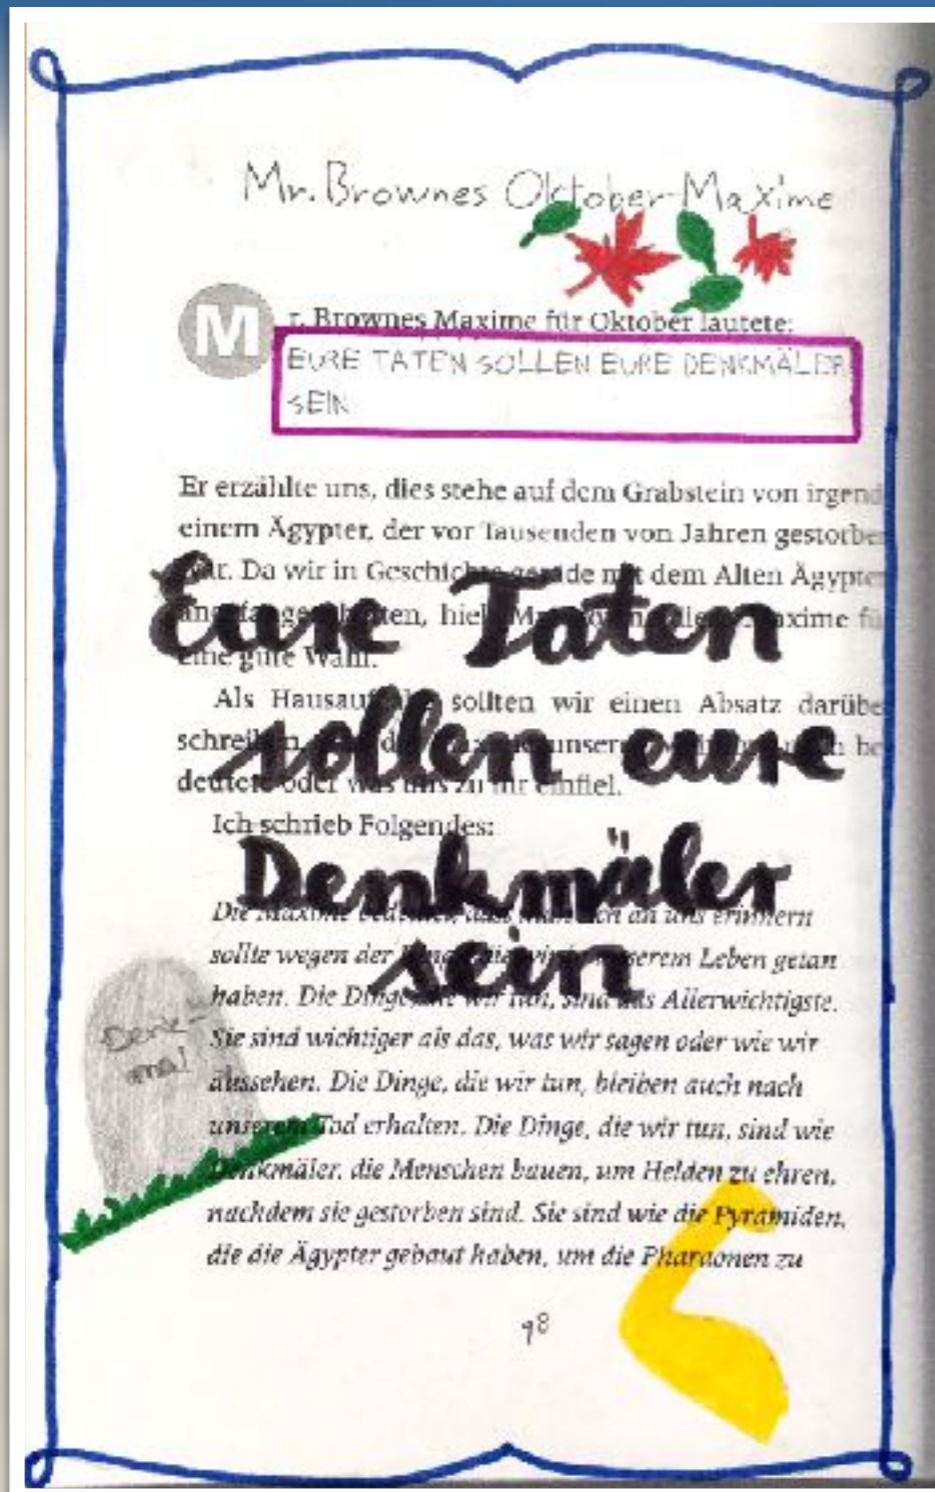 Mr. Brownes Oktober-Maxime
M
r. Brownes Maxime für Oktober lautete:
EURE TATEN SOLLEN EURE DENKMÄLER
SEIN
Er erzählte uns, dies stehe auf dem Grabstein von irgend
einem Ägypter, der vor Tausenden von Jahren gestorbe
Da wir in Geschichte gerade mit dem Alten Ägypte
hielt Maxime fü
eine gute Wahl.
Eure Taten
Als Hausaufgabe sollten wir einen Absatz darübe
unserer be
deutete oder was uns zu ihr einfiel.
sollen eure
Ich schrieb Folgendes:
Denkmäler
Die Maxime bedeutet, dass man sich an uns erinnern
sollte wegen der Dinge, die wir in unserem Leben getan
sein
haben. Die Dinge, die wir tun, sind das Allerwichtigste.
Denk-
mal
Sie sind wichtiger als das, was wir sagen oder wie wir
aussehen. Die Dinge, die wir tun, bleiben auch nach
unserem Tod erhalten. Die Dinge, die wir tun, sind wie
Denkmäler, die Menschen bauen, um Helden zu ehren,
nachdem sie gestorben sind. Sie sind wie die Pyramiden,
die die Ägypter gebaut haben, um die Pharaonen zu
98